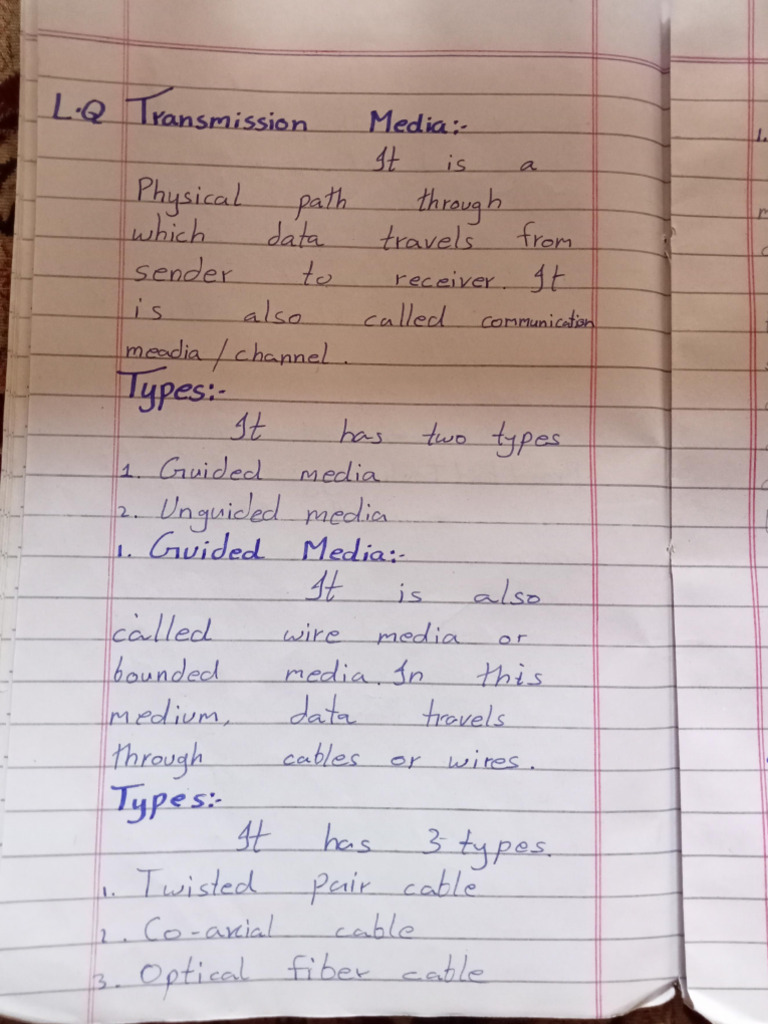 L.Q Transmission Media:-
It is a
Physical path through
which data travels from
sender to receiver. It
is also called communication
meadia / channel.
Types:-
It has two types
1. Guided media
2. Unguided media
1. Guided Media:-
It is also
called wire media or
bounded media. In this
medium, data travels
through cables or wires.
Types:-
It has 3 types.
1. Twisted pair cable
2. Co-axial cable
3. Optical fiber cable